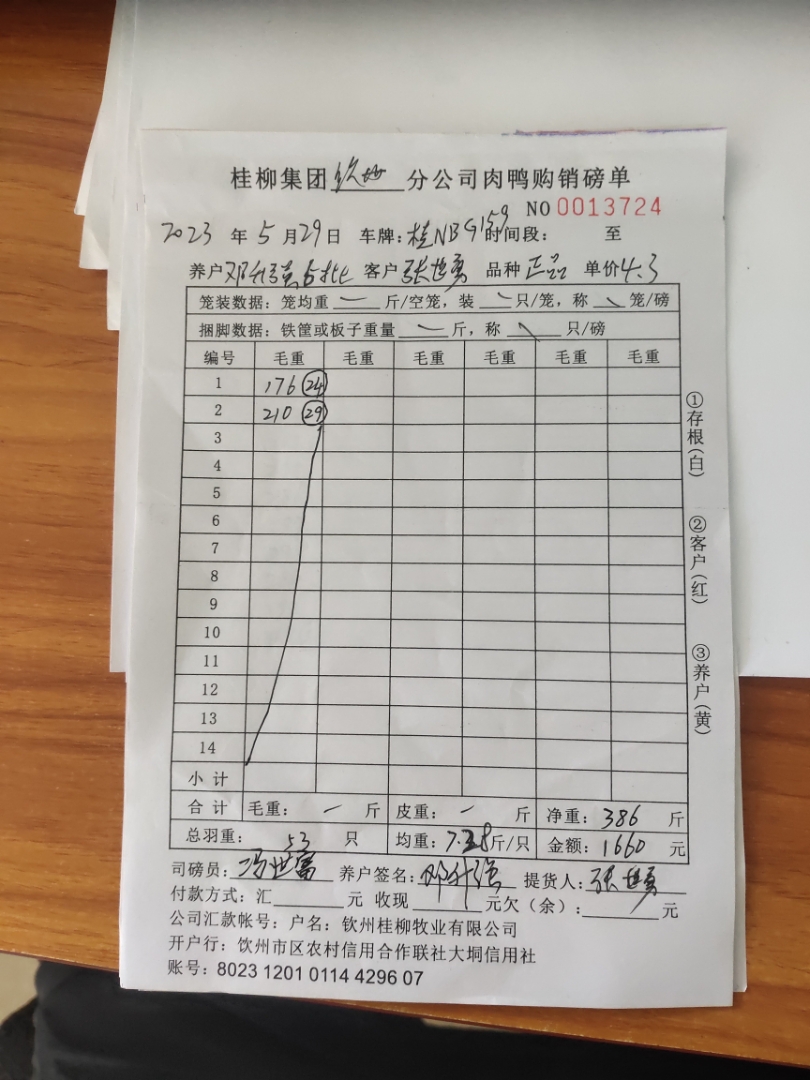 桂柳集团钦州分公司肉鸭购销磅单
NO 0013724
2023年5月29日 车牌:桂NBG159时间段: 至
养户邓升强 客户张世勇 品种正品 单价4.3
笼装数据:笼均重 斤/空笼,装 只/笼,称 笼/磅
捆脚数据:铁筐或板子重量 斤,称 只/磅
编号 毛重 毛重 毛重 毛重 毛重 毛重
1 176 24
2 210 29
3
4
5
6
7
8
9
10
11
12
13
14
小计
合计 毛重: 一 斤 皮重: 一 斤 净重: 386 斤
总羽重: 53 只 均重: 7.28斤/只 金额: 1660 元
司磅员: 冯世富 养户签名: 邓升强 提货人: 张世勇
付款方式:汇 元 收现 元欠(余): 元
公司汇款帐号:户名:钦州桂柳牧业有限公司
开户行:钦州市区农村信用合作联社大垌信用社
账号:8023 1201 0114 4296 07
①存根(白)
②客户(红)
③养户(黄)